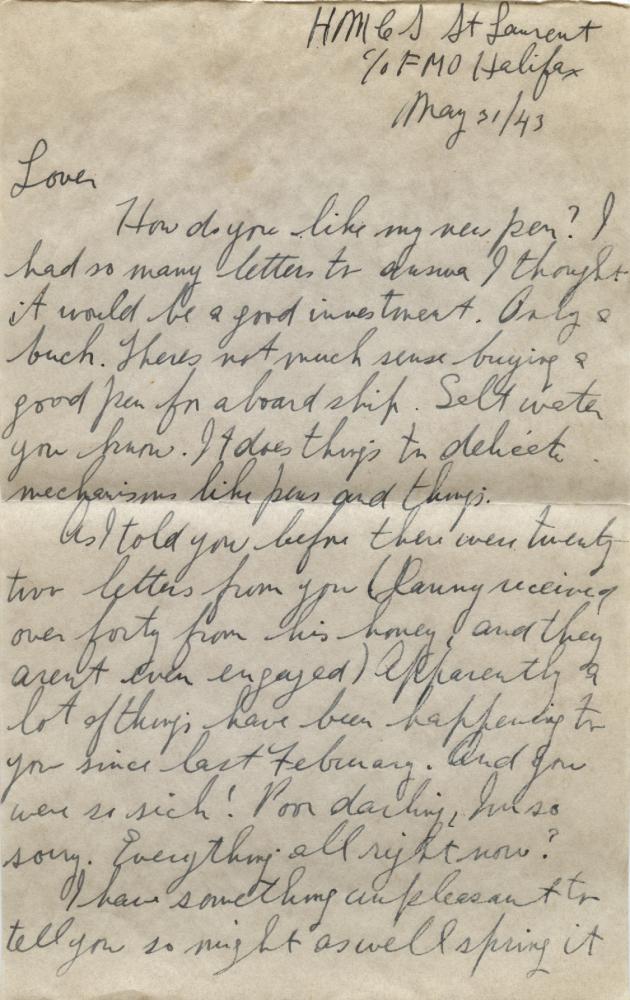 HMCS St Laurent
c/o FMO Halifax
May 31/43
Lover
How do you like my new pen? I
had so many letters to answer I thought
it would be a good investment. Only a
buck. Theres not much sense buying a
good pen for aboard ship. Salt water
you know. It does things to delicate
mechanisms like pens and things.
As I told you before there were twenty
two letters from you (Danny received
over forty from his honey, and they
arent even engaged) Apparently a
lot of things have been happening to
you since last February. And you
were so sick! Poor darling, Im so
sorry. Everything all right now?
I have something unpleasant to
tell you so might as well spring it